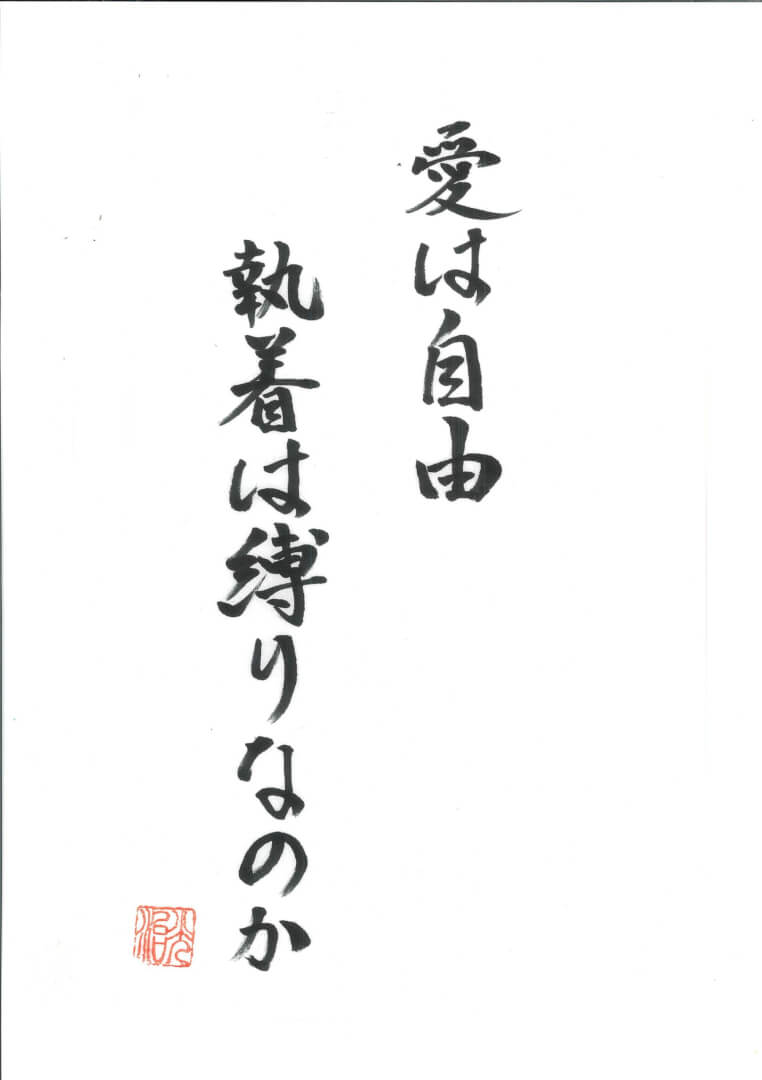 愛は自由
執着は縛りなのか